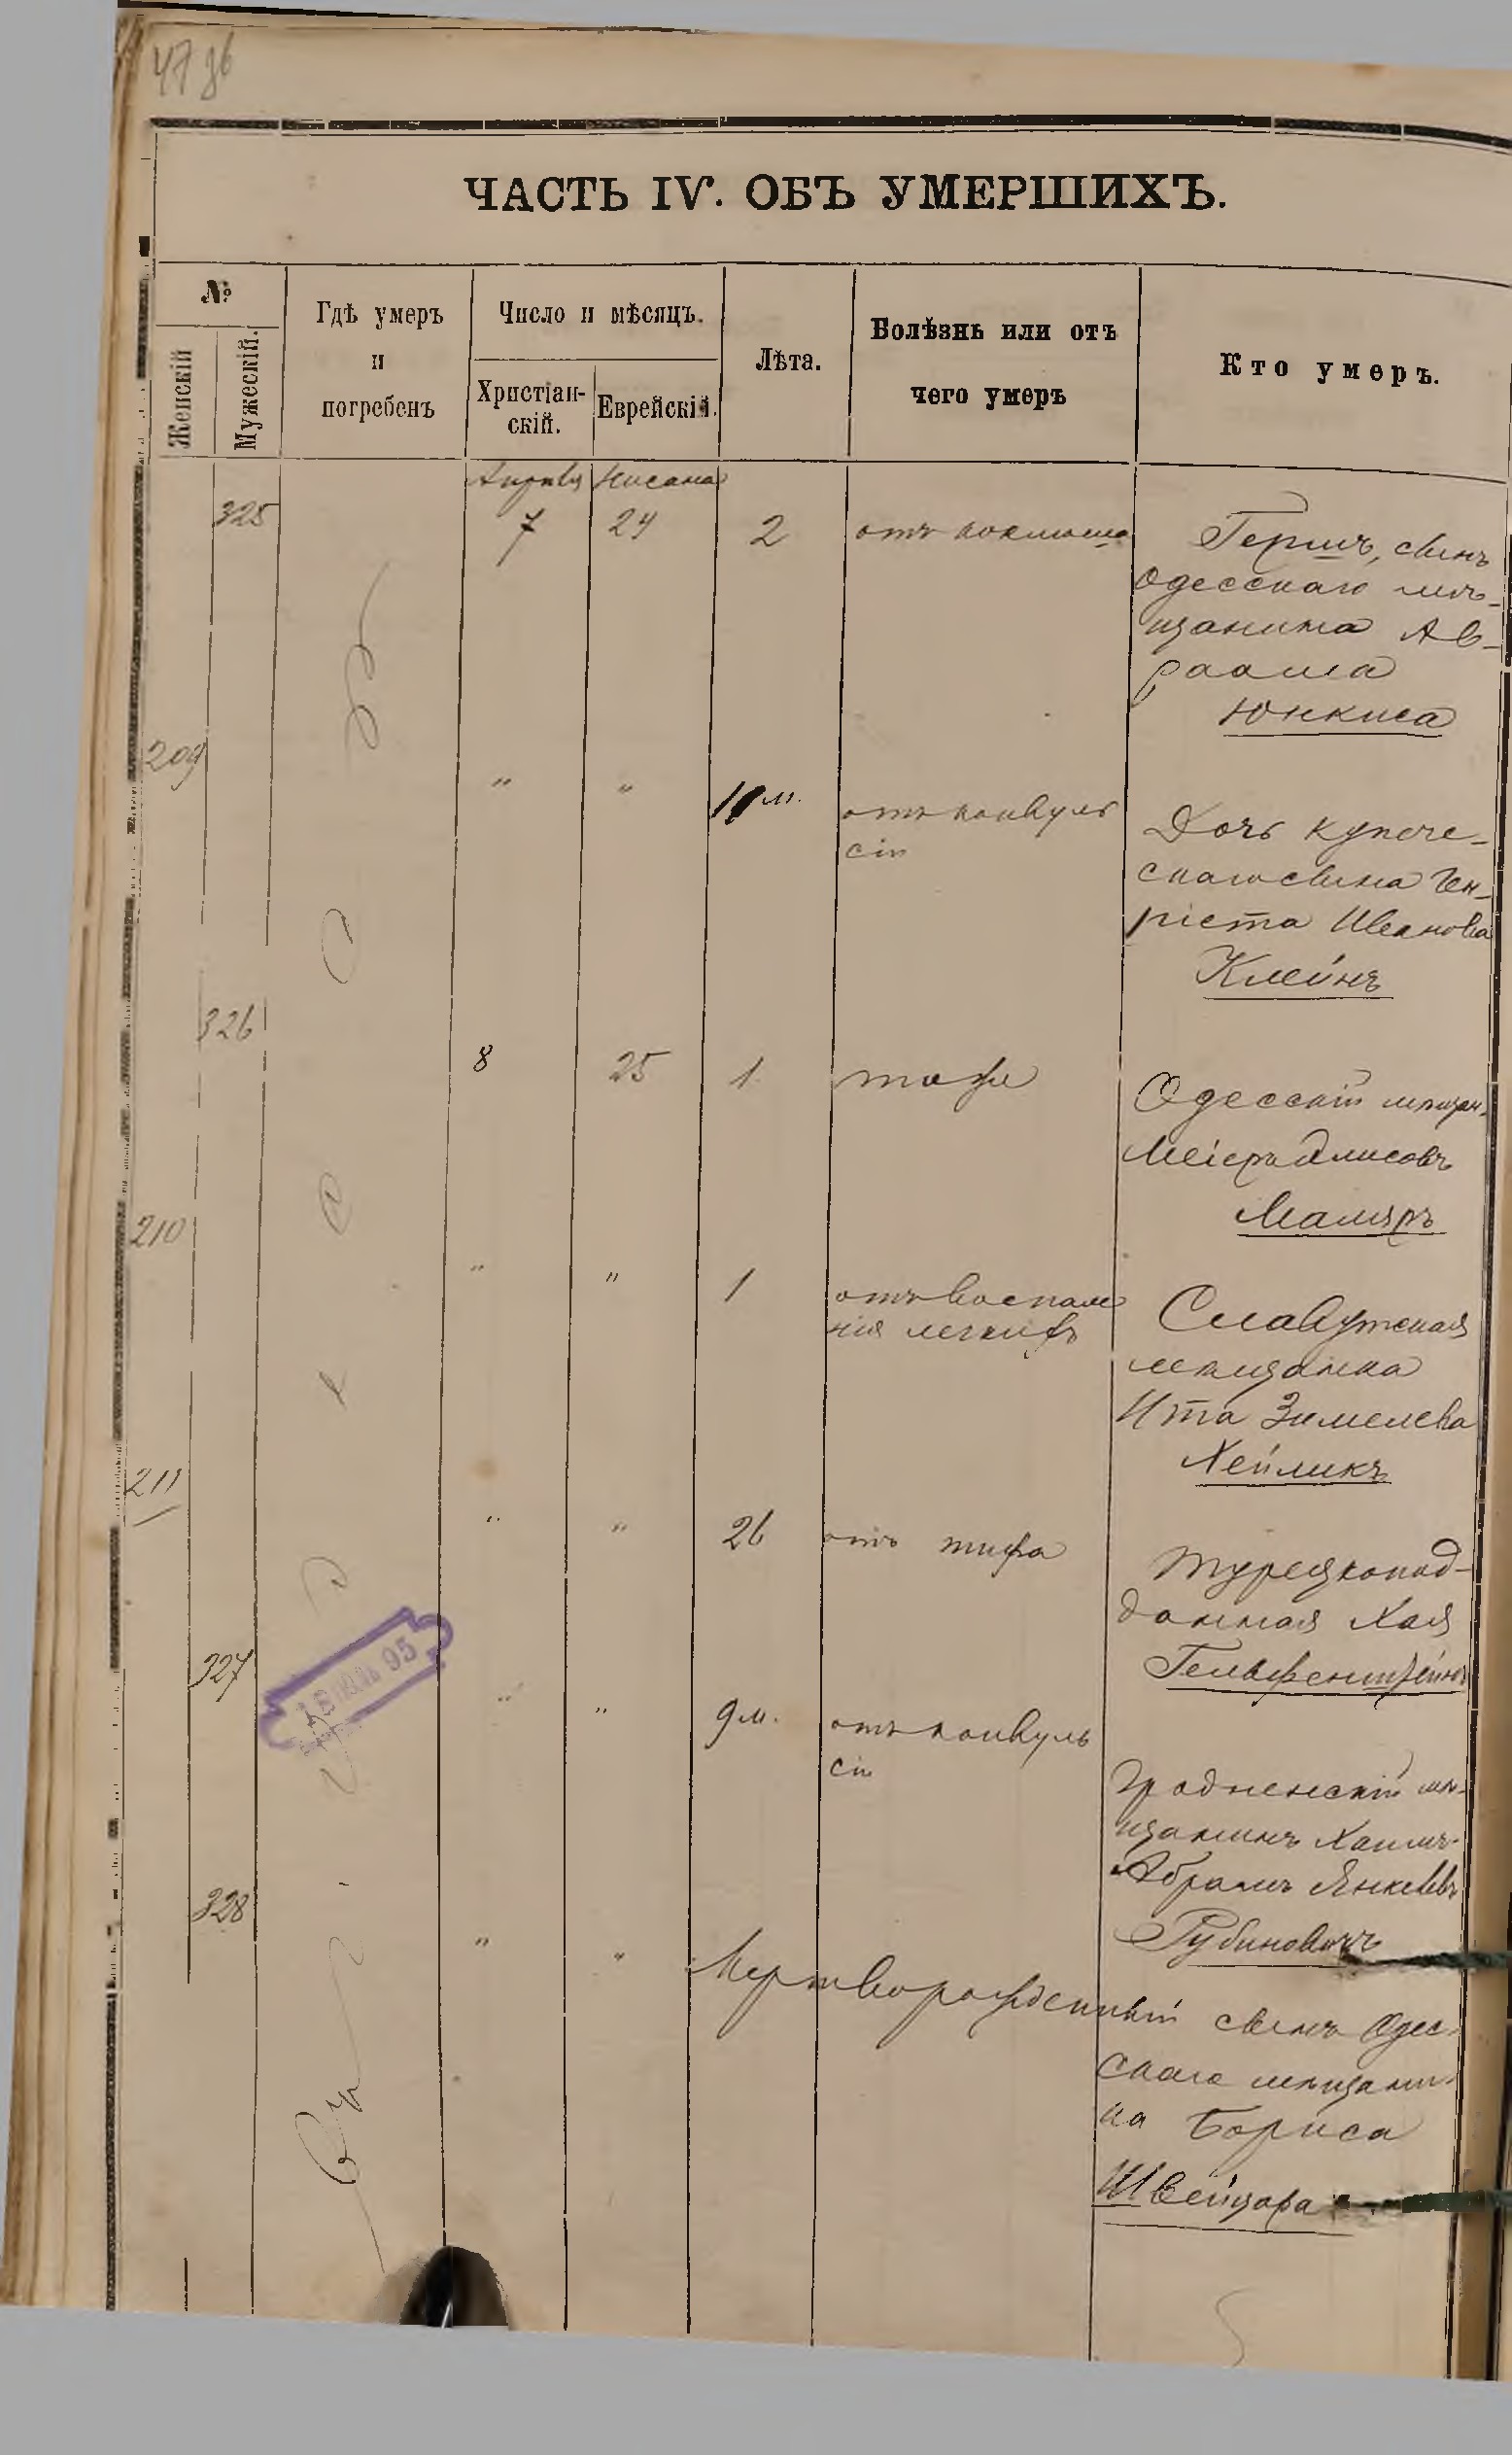 ЧАСТЬ IV. ОБЪ УМЕРШИХЪ.
№
Женскій
Мужескій.
Гдѣ умеръ
и
погребенъ
Число и мѣсяцъ.
Христіан-
скій.
Еврейскій.
Лѣта.
Болѣзнь или отъ
чего умеръ
Кто умеръ.
Апрѣля Нисана
325 7 24 2 отъ коклюша Гершъ, сынъ
Одесскаго мѣ-
щанина Ав-
раама
Юнкиса
209 " " м. отъ конвуль
сій
Дочь купече-
скаго сына Ген-
ріета Иванова
Клейнъ
326 8 25 1 тоже Одесскій мѣщан.
Меіеръ
Маляръ
210 " " 1 отъ воспале
нія легкихъ
Славутская
мѣщанка
Ита Зимелева
Хейликъ
211 " " 26 отъ тифа Турецкопод-
данная Хая
Гельфенштейнъ
327 " " 9 м. отъ конвуль
сій
Гродненскій мѣ-
щанинъ Хаимъ-
Абрамъ Янкелевъ
Рубиновичъ
328 " " Мертворожденный сынъ Одес-
скаго мѣщани-
на Бориса
Швейцара
Въ Одессѣ
95